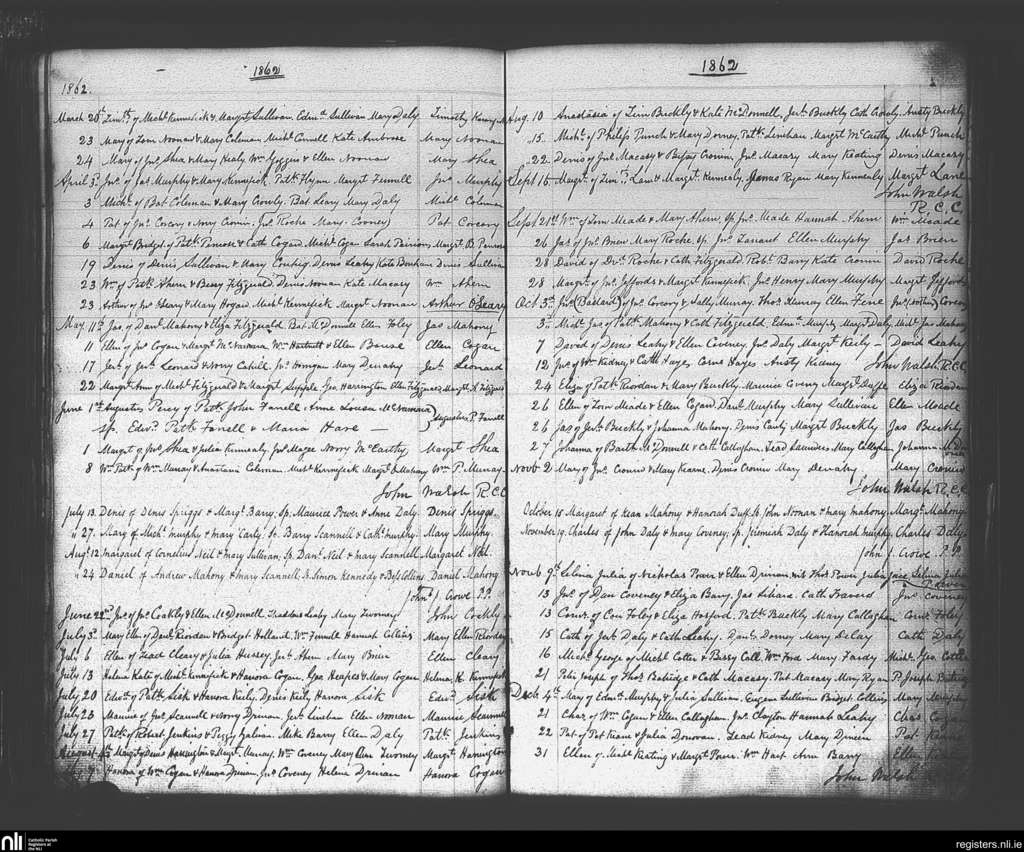 1862
1862.
March 20th Timthy of Michl Kennefick & Margt Sullivan Edmd Sullivan Mary Daly Timothy
23 Mary of Tom Noonan & Mary Coleman Michl Connell Kate Ambrose Mary Noonan
24 Mary of Jno Shea & Mary Healy Wm Goggin & Ellen Noonan Mary Shea
April 3d Jno of Jas Murphy & Mary Kennefick Patk Flynn Margt Fennell Jno Murphy
3 Michl of Bat Coleman & Mary Crowly Bat Leary Mary Daly Michl Coleman
4 Pat of Jno Corcory & Cronin Jno Roche Mary Cooney Pat Corcory
6 Margt Bridgt of Patk Penrose & Cath Cogan Michl Cogan Sarah Margt B. Penrose
19 Denis of Denis Sullivan & Mary Denis Leahy Kate Denis Sullivan
23 Wm of Patk Ahern & Bessy Fitzgerald Denis Noonan Kate Macasy Wm Ahern
23 Arthur of Jno O'Leary & Mary Hogan Michl Kennefick Margt Noonan Arthur O'Leary
May 11th Jas of Danl Mahony & Eliza Fitzgerald Bat McDonnell Ellen Foley Jas Mahony
11 Ellen of Jno Cogan & Margt McNamara Wm Hartnett & Ellen Ellen Cogan
17 Jno of Jno Leonard & Nory Cahill Jno Horgan Mary Jno Leonard
22 Margt Ann of Michl Fitzgerald & Margt Supple Geo Harrington Ellen Fitzgerald Margt A. Fitzgerald
June 1st Augustus Percy of Patk John Farrell & Anne Louisa McNamara Augustus P. Farrell
Sp. Edwd Patk Farrell & Maria Hare —
1 Margt of Jno Shea & Julia Kennealy Jno Magee Norry McCarthy Margt Shea
8 Wm Patk of Wm Murray & Anastasia Coleman Michl Kennefick Margt O'Mahony Wm P. Murray
John Walsh R.C.C
July 13. Denis of Denis Spriggs & Margt Barry. Sp. Maurice Power & Anne Daly Denis Spriggs
" 27. Mary of Michl murphy & mary Early. Sp. Barry Scannell & Cathe murphy. Mary Murphy.
Augt 12 margaret of Cornelius Neil & mary Sullivan. Sp. Danl Neil & mary Scannell Margaret Neil.
" 24 Daniel of Andrew Mahony & mary Scannell. Sp. Simon Kennedy & Bess Collins Daniel Mahony
John J. Crowe P.P.
June 22nd Jno of Jno Coakly & Ellen McDonnell Thaddeus Leahy Mary Twomey John Coakly
July 5th Mary Ellen of Danl Riordan & Bridget Holland. Wm Fennell Hannah Collins Mary Ellen Riordan
July 6 Ellen of Thad Cleary & Julia Hussey Jno Ahern Mary Brien Ellen Cleary
July 13 Helena Kate of Michl Kennefick & Hanora Cogan. Geo Heapes & Mary Cogan Helena K. Kennefick
July 20 Edwd of Patk Sisk & Hanora Kiely, Denis Kiely Hanora Sisk Edwd Sisk
July 25 Maurice of Jno Scannell & Norry Drinan Jno Linehan Ellen Noonan Maurice Scannell
July 27 Patk of Robert Jenkins & Peggy Galvin. Mike Barry Ellen Daly Patk Jenkins
August Margt of Denis Harrington & Margt Murray. Wm Coveney Mary Ann Twomey Margt Harrington
9 Hanora of Wm Cogan & Hanora Drinan, Jno Coveney Helena Drinan Hanora Cogan
1862
Aug. 10 Anastasia of Tim Buckly & Kate McDonnell, Jerh Buckly Cath Crowly Ansty Buckly
15 Michl of Philip Punch & Mary Dorney, Patk Linehan Margt McCarthy Michl Punch
22 Denis of Jno Macasy & Cronin, Jno Macasy Mary Keating Denis Macasy
Sept 15 Margt of Timy Lane & Margt Kennealy. James Ryan Mary Kennealy Margt Lane
John Walsh
R.C.C.
Sept 21st Wm of Tom Meade & Mary Ahern, Sp Jno Meade Hannah Ahern Wm Meade
26 Jas of Jno Brien Mary Roche, Sp. Jno Ellen Murphy Jas Brien
28 David of Roche & Cath Fitzgerald Robt Barry Kate Cronin David Roche
28 Margt of Jno Jeffords & Margt Kennefick, Jno Henry Mary Murphy Margt Jeffords
Oct 3d Jno (Bastard) of Jno Corcory & Sally Murray. Thos Murray Ellen Jno (Bastard) Corcory
3d Michl Jas of Patk Mahony & Cath Fitzgerald. Edmd Murphy Margt Daly Michl Jas Mahony
7 David of Denis Leahy & Ellen Coveney, Jno Daly Margt Kiely — David Leahy
12 Jno of Wm Kidney & Cath Hayes Corns Hayes Ansty Kidney John Walsh R.C.C
24 Eliza of Patk Riordan & Mary Buckly. Maurice Margt Duffe Eliza Riordan
26 Ellen of Tom Meade & Ellen Cogan. Danl Murphy Mary Sullivan Ellen Meade
26 Jas of Jno Buckly & Johanna Mahony. Denis Margt Buckly Jas Buckly
27 Johanna of Barth McDonnell & Cath Callaghan. Thad Saunders Mary Callaghan Johanna
Novr 2 Mary of Jno Cronin & Mary Kearne. Denis Cronin Mary Mary Cronin
John Walsh R.C.C
October 15 Margaret of Kean Mahony & Hanorah Duff Sp John Noonan & mary mahony Margt Mahony
November 19. Charles of John Daly & mary Coveney; Sp. Jeremiah Daly & Hanorah murphy. Charles Daly.
John J. Crowe. P.P.
Novb 9th Selina Julia of Nicholas Power & Ellen Drinan Thos Power Julia Selina Julia Power
13 Jno of Dan Coveney & Eliza Barry, Jas Cath Jno Coveney
13 Corns of Con Foley & Eliza Hosford. Patk Buckly Mary Callaghan Corns Foley
15 Cath of Jno Daly & Cath Leahy. Danl Dorney Mary DeLay Cath Daly
16 Michl George of Michl Cotter & Bessy Call Wm Ford Mary Fardy Michl Geo Cotter
21 Peter Joseph of Thos & Cath Macasy. Pat Macasy Mary Ryan P. Joseph
Decb 4th Mary of Edmd Murphy & Julia Sullivan. Eugene Sullivan Bridget Collins Mary Murphy
21 Chas of Wm Cogan & Ellen Callaghan. Jno Clayton Hannah Leahy Chas Cogan
22 Pat of Pat Keane & Julia Donovan. Thad Kidney Mary Dineen Pat Keane
31 Ellen of Michl Keating & Margt Power. Wm Hart Ann Barry Ellen
John Walsh
nli
Catholic Parish
Registers at
the NLI
registers.nli.ie